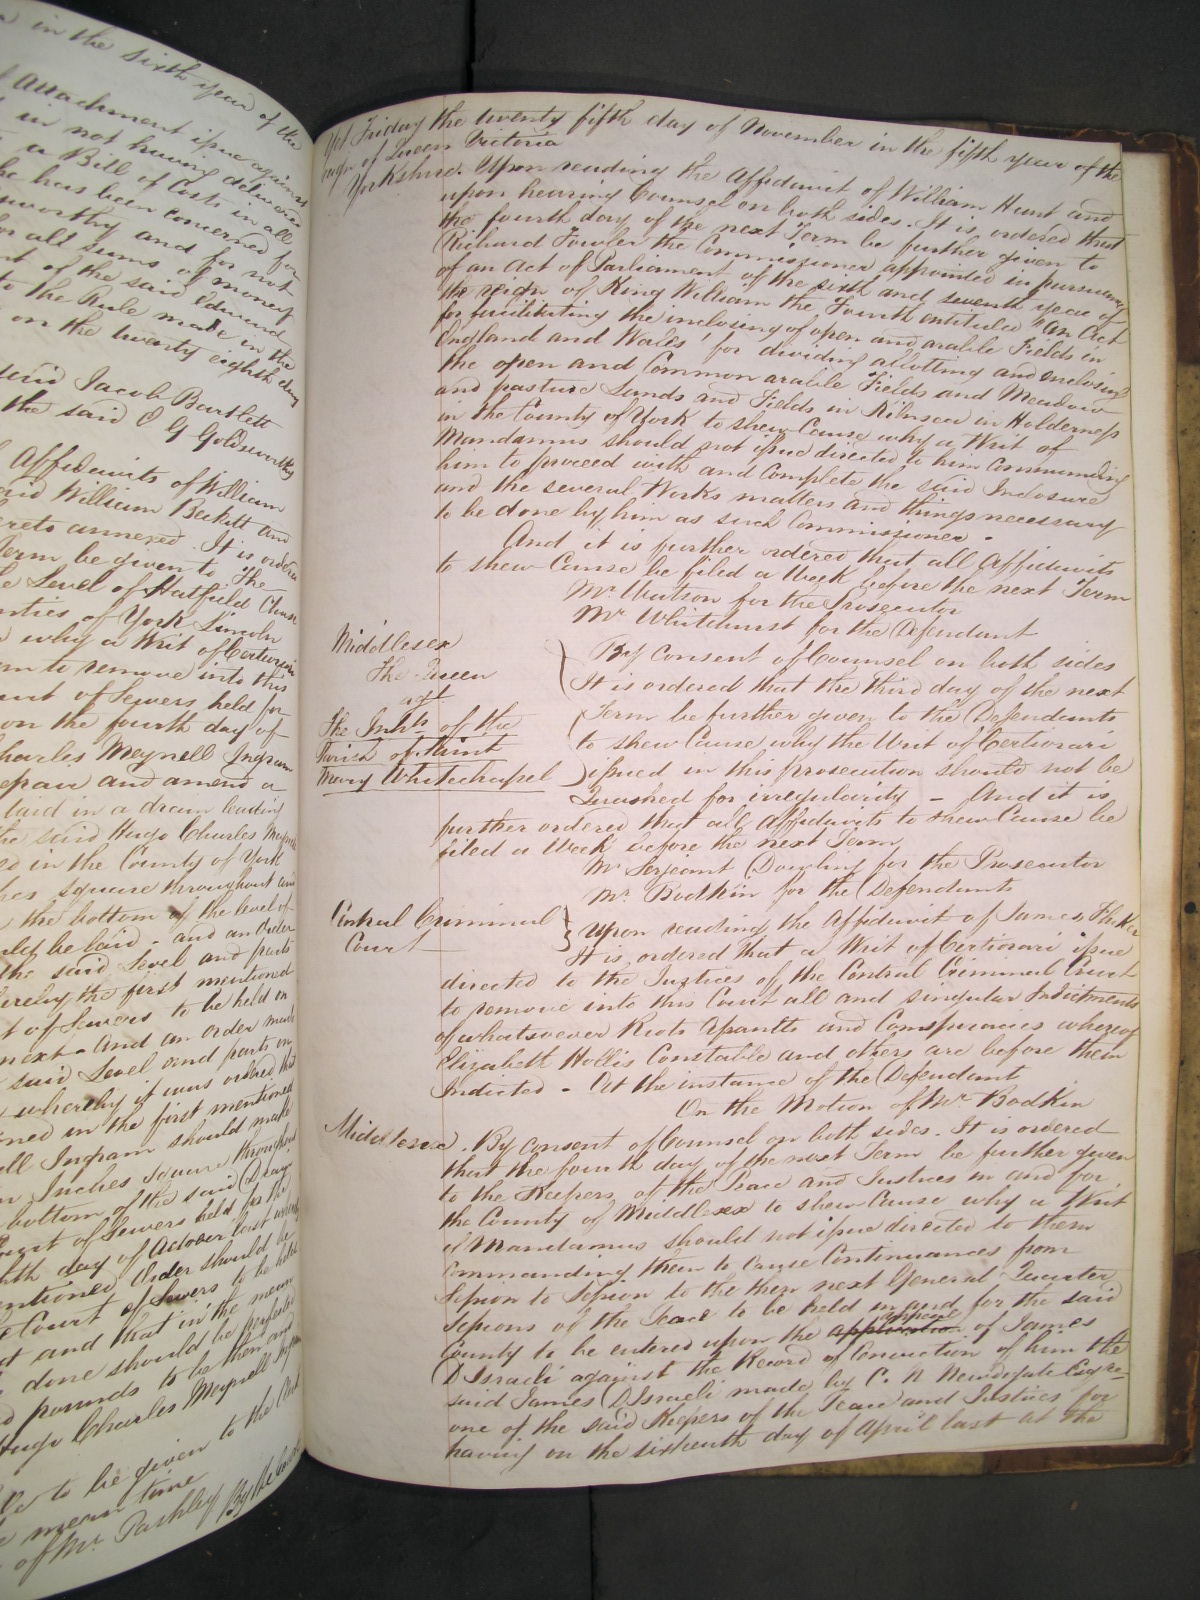 in the sixth year of the
Attachment issue against
in not having delivered
a Bill of Costs in all
he has been concerned for
worthy and for not
or all sums of money
nt of the said Edmund
to the Rule made in the
on the twenty eighth day
said Jacob Bartlett
the said O G Goldsworthy
Affidavits of William
and William Beckitt and
hereto annexed. It is ordered
Term be given to The
e Level of Hatfield Chase
nties of York Lincoln
why a Writ of Certiorari
m to remove into this
ourt of Sewers held for
on the fourth day of
Charles Meynell Ingram
epair and amend a
laid in a drain leading
the said Hugo Charles Meynell
ed in the County of York
hes square throughout and
the bottom of the level of
uld be laid - and an Order
the said Level and parts
hereby the first mentioned
t of Sewers to be held on
next - And an order made
said Level and parts on
whereby it was ordered that
ned in the first mentioned
ell Ingram should make
n Inches square throughout
bottom of the said Drain
Court of Sewers held for the
hth day of October last
entioned Order should be
Court of Sewers to be held
and that in the mean
done should be
pounds to be then
Hugo Charles Meynell Ingram
to be given to the
mean time
of Mr. Pashley By the Court
Yet Friday the twenty fifth day of November in the fifth year of the
reign of Queen Victoria
Yorkshire. Upon reading the Affidavit of William Hunt and
upon hearing Counsel on both sides. It is ordered that
the fourth day of the next Term be further given to
Richard Fowler the Commissioner appointed in pursuance
of an Act of Parliament of the sixth and seventh year of
the reign of King William the Fourth entituled "An Act
for facilitating the inclosing of open and arable Fields in
England and Wales" for dividing allotting and inclosing
the open and Common arable Fields and Meadow
and pasture Lands and Fields in Kilnsea in Holderness
in the County of York to shew Cause why a Writ of
Mandamus should not issue directed to him Commanding
him to proceed with and Complete the said Inclosure
and the several Works matters and things necessary
to be done by him as such Commissioner -
And it is further ordered that all Affidavits
to shew Cause be filed a Week before the next Term
Mr. Watson for the Prosecutor
Mr. Whitehurst for the Defendant
Middlesex
The Queen
agt
The Inhts. of the
Parish of Saint
Mary Whitechapel
By Consent of Counsel on both sides
It is ordered that the third day of the next
Term be further given to the Defendants
to shew Cause why the Writ of Certiorari
issued in this prosecution should not be
Quashed for irregularity - And it is
further ordered that all Affidavits to shew Cause be
filed a Week before the next Term
Mr. Serjeant Dowling for the Prosecutor
Mr. Bodkin for the Defendants
Central Criminal
Court
Upon reading the Affidavit of James
It is ordered that a Writ of Certiorari issue
directed to the Justices of the Central Criminal Court
to remove into this Court all and singular Indictments
of whatsoever Riots Assaults and Conspiracies whereof
Elizabeth Hollis Constable and others are before them
Indicted - At the instance of the Defendant
On the Motion of Mr. Bodkin
Middlesex. By Consent of Counsel on both sides. It is ordered
that the fourth day of the next Term be further given
to the Keepers of the Peace and Justices in and for
the County of Middlesex to shew Cause why a Writ
of Mandamus should not issue directed to them
Commanding them to Cause Continuances from
Session to Session to the then next General Quarter
Sessions of the Peace to be held in and for the said
County to be entered upon the application appeal of James
D'Israeli against the Record of Conviction of him the
said James D'Israeli made by C. N. Newdegate Esqre.
one of the said Keepers of the Peace and Justices for
having on the sixteenth day of April last at the